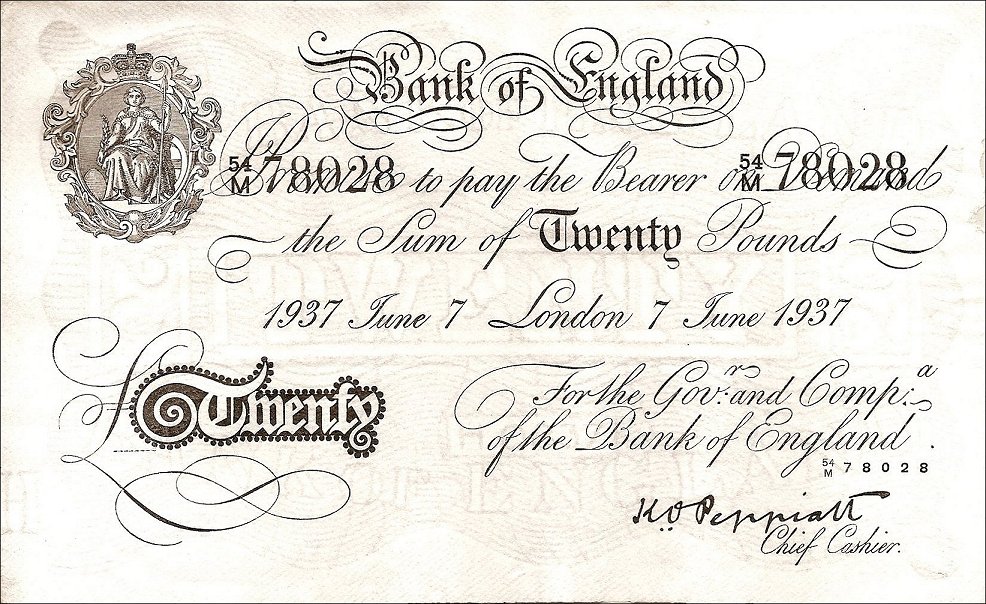 Bank of England
54/M 78028 54/M 78028
I Promise to pay the Bearer on Demand
the Sum of Twenty Pounds
1937 June 7 London 7 June 1937
£ Twenty
For the Govr: and Compa:
of the Bank of England.
54/M 78028
K.O. Peppiatt
Chief Cashier.